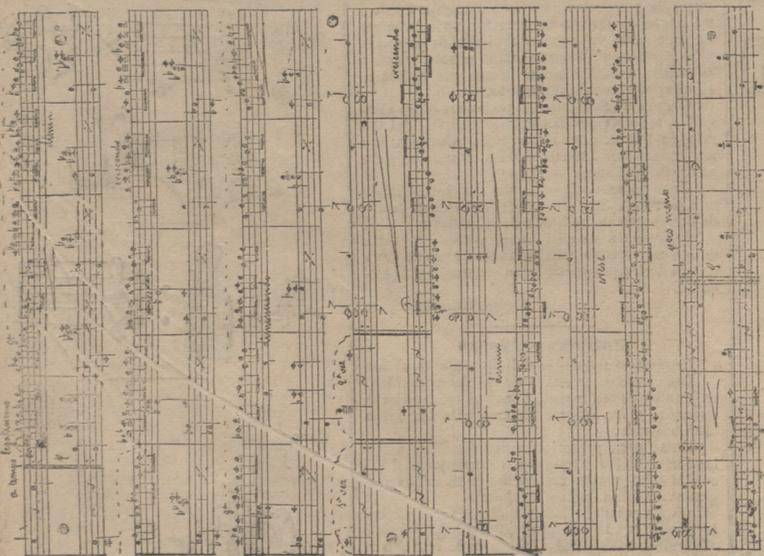 a tempo legatissimo
8ª
dimin
crescendo
8ª
diminuendo
1ª vez
2ª vez
crescendo
dimin
cresc
poco meno